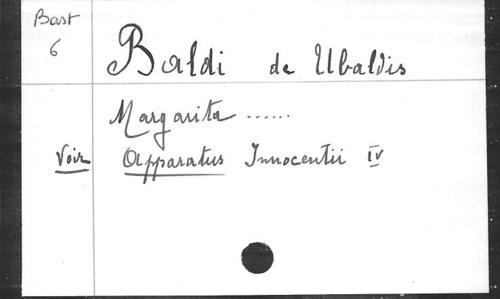 Bast
6
Baldi de Ubaldis
Margarita ......
Voir Apparatus Innocentii IV